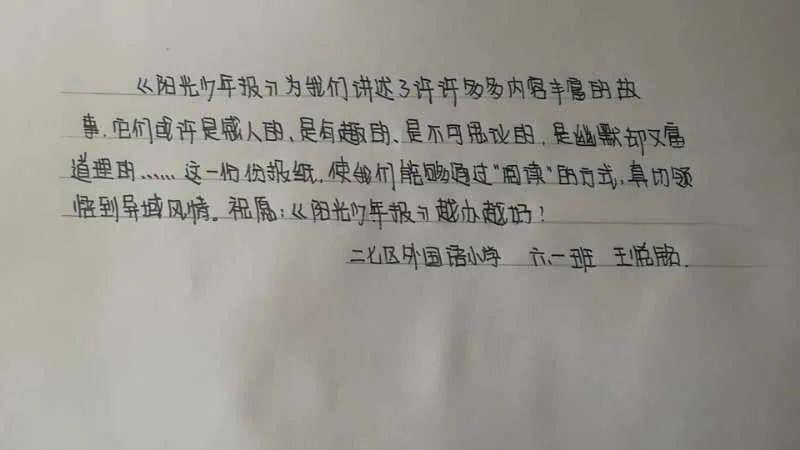 《阳光少年报》为我们讲述了许许多多内容丰富的故
事,它们或许是感人的、是有趣的、是不可思议的,是幽默却又富
道理的……这一份份报纸,使我们能够通过“阅读”的方式,真切领
悟到异域风情。祝愿:《阳光少年报》越办越好!
二七区外国语小学 六一班 王